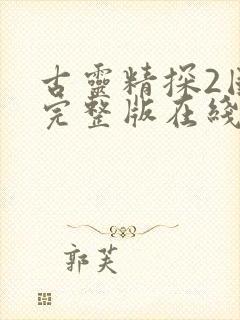 古靈精探2
完整版在綫
郭芙